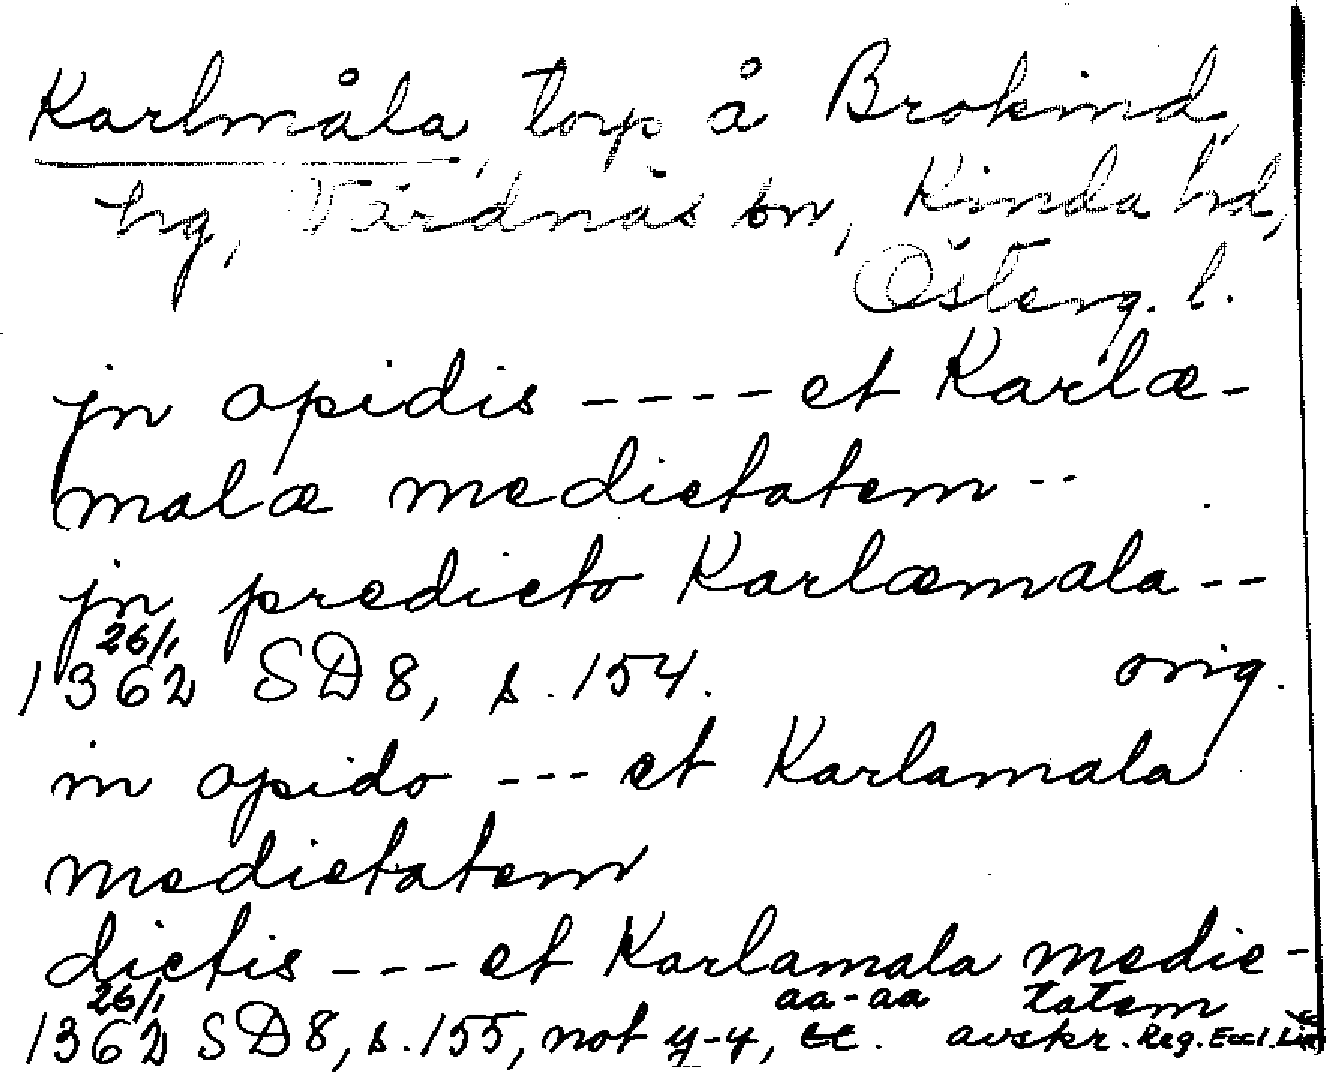 Karlmåla, torp å Brokind,
hg, Vårdnäs sn, Kinda hd,
Österg. l.
jn opidis ---- et Karlæ-
malæ medietatem --
jn predicto Karlæmala --
26/1
1362 SD 8, s. 154. orig.
in opido --- et Karlamala
medietatem
dictis --- et Karlamala medie-
26/1 aa-aa tatem
1362 SD 8, s. 155, not y-y, avskr. Reg. Eccl.